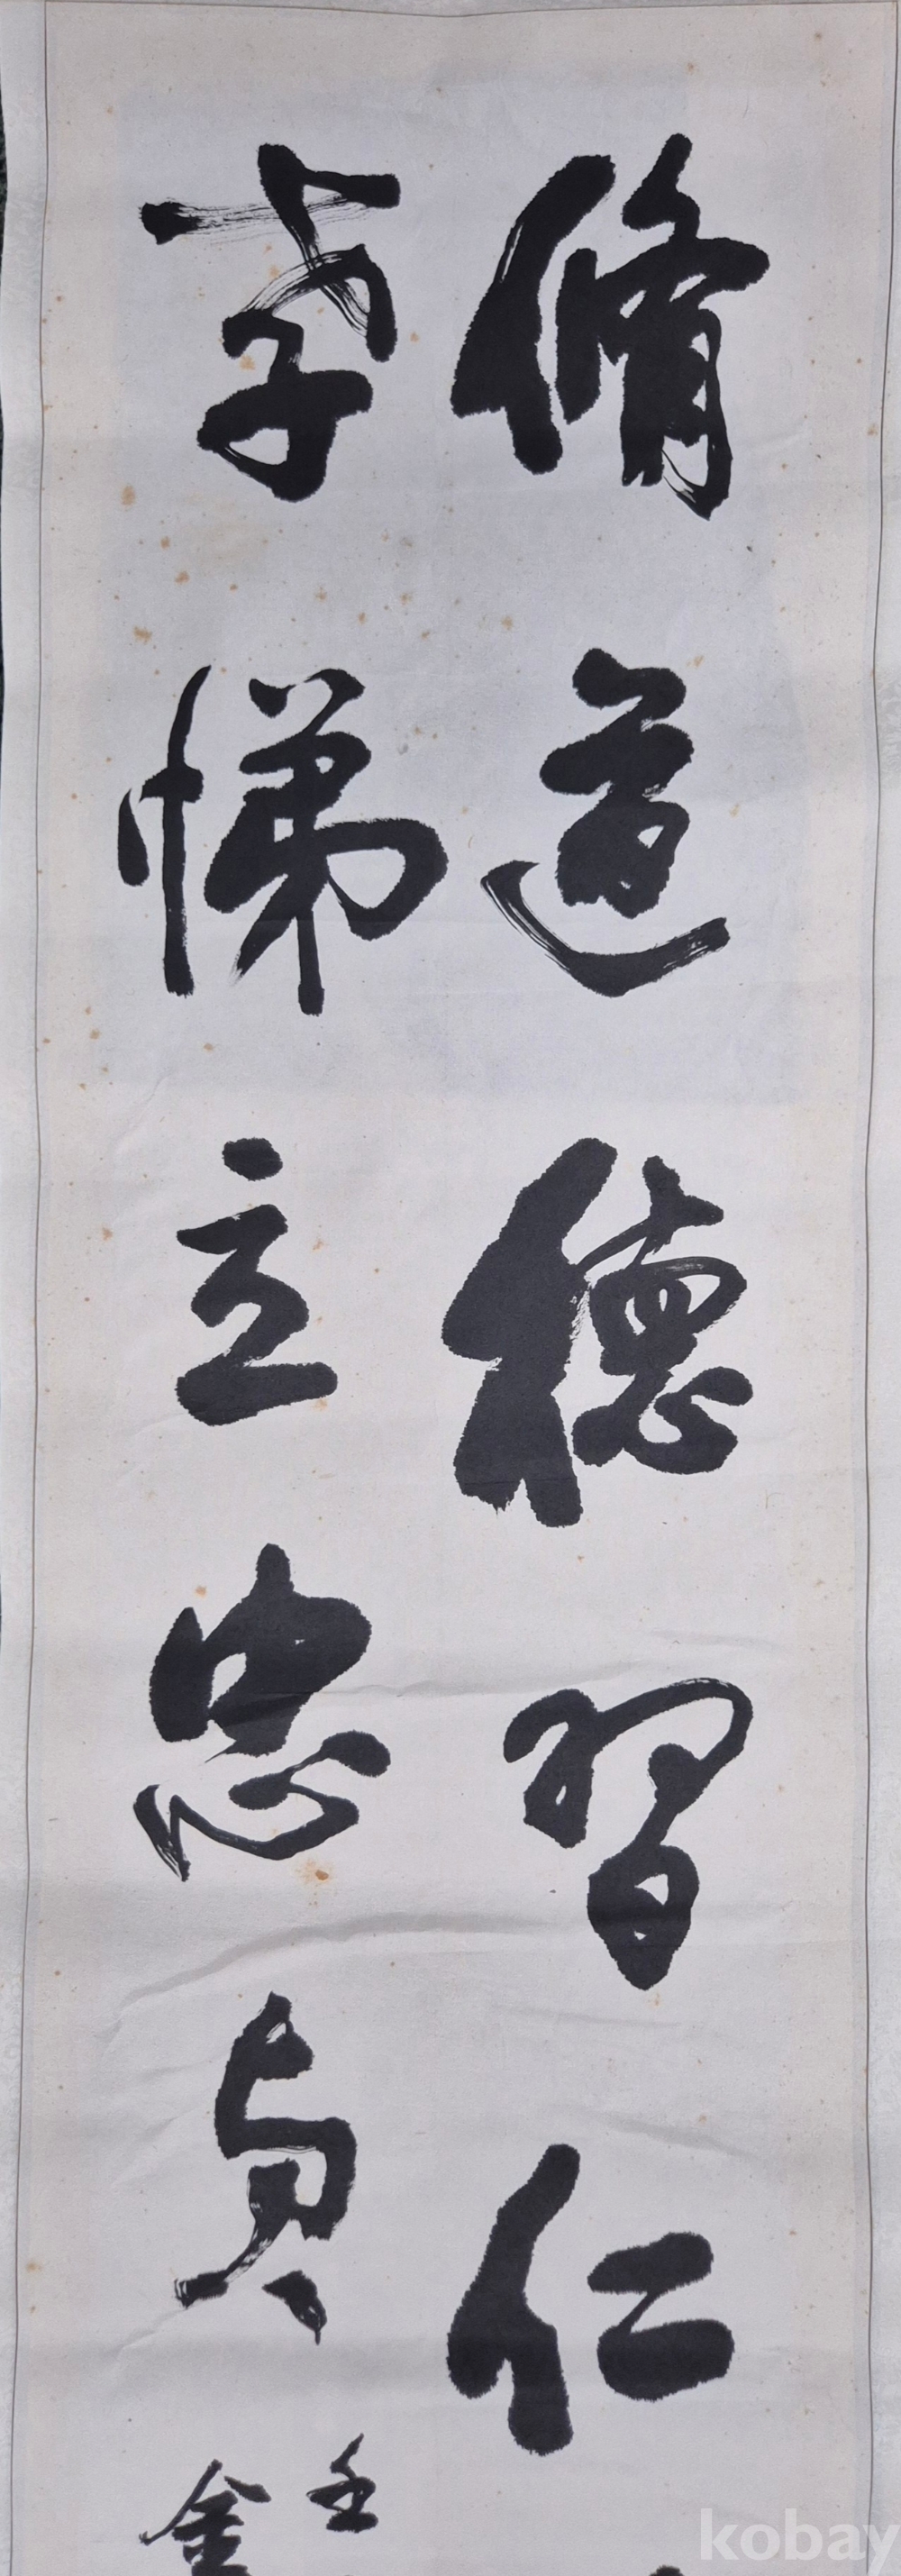 脩道德習仁
孝悌立忠貞
壬
金
kobay